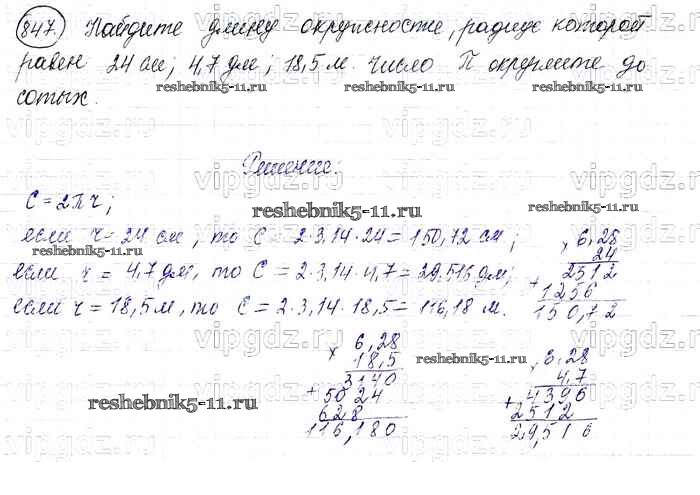 847. Найдите длину окружности, радиус которой
равен 24 см; 4,7 дм; 18,5 м. Число П округлите до
сотых.
reshebnik5-11.ru
reshebnik5-11.ru
vipgdz.ru
Решение:
C = 2πr;
reshebnik5-11.ru
если r = 24 см, то C = 2·3,14·24 = 150,72 см;
если r = 4,7 дм, то C = 2·3,14·4,7 = 29,516 дм;
если r = 18,5 м, то C = 2·3,14·18,5 = 116,18 м.
× 6,28
24
2512
+ 1256
150,72
× 6,28
18,5
3140
+ 5024
628
116,180
× 6,28
4,7
+ 4396
2512
29,516
reshebnik5-11.ru
reshebnik5-11.ru
reshebnik5-11.ru
vipgdz.ru